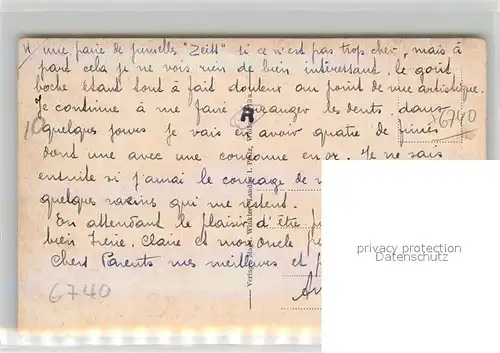 une paire de jumelles "Zeiss" si ce n'est pas trop cher, mais à
part cela je ne vois rien de bien intéressant, le goût
boche étant tout à fait douteux au point de vue artistique.
Je continue à me faire arranger les dents, dans
quelques jours je vais en avoir quatre de finies
dont une avec une couronne en or. Je ne sais
ensuite si j'aurai le courage de
quelques racines qui me restent.
En attendant le plaisir d'être
bien Irène, Claire et mon oncle
Chers Parents mes meilleurs et
6740
6740
10
R
privacy protection
Datenschutz